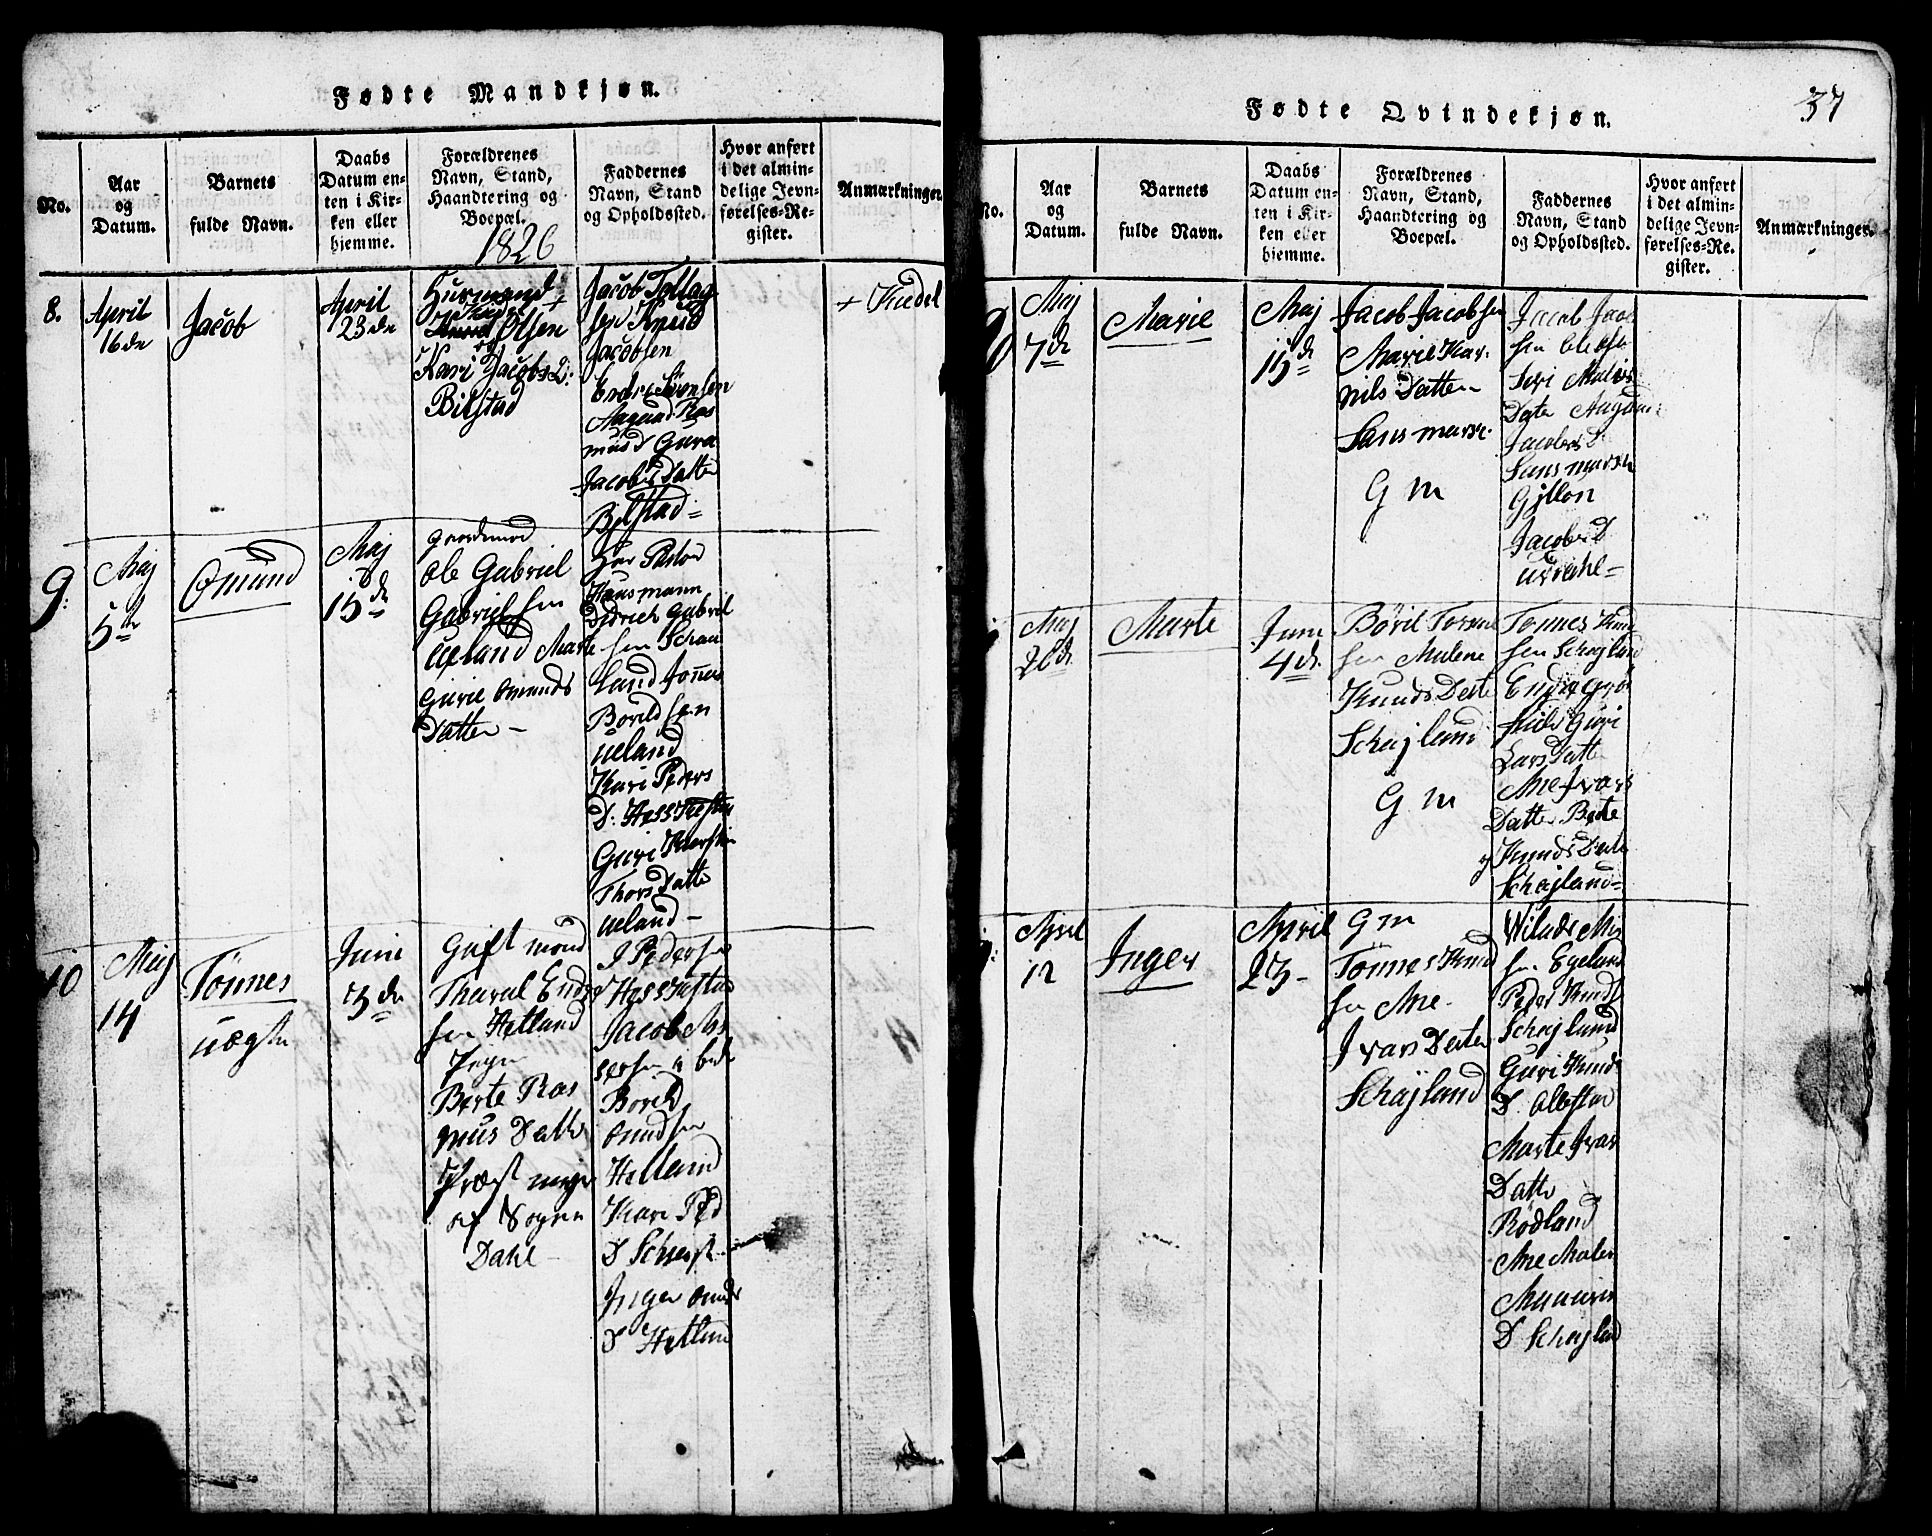 Fødte Mandkjøn.
No.
Aar
og
Datum.
Barnets
fulde Navn.
Daabs
Datum en-
ten i Kir-
ken eller
hjemme.
Forældrenes
Navn, Stand,
Haandtering og
Boepæl.
1826
Faddernes
Navn, Stand
og Opholdssted.
Hvor anført
i det almin-
delige Jevn-
førelses-Re-
gister.
Anmærkninger.
8.
April
16de
Jacob
April
23de
Huusmand
Olsen
Kari Jacobs D:
Bilstad
Jacob Tollag
sen Knud
Jacobsen
Endre Svensen
Aagaard Ras
mus D Guro
Jacobs Datter
Bilstad =
+
9:
Maj
5te
Omund
Maj
15de
Gaardmand
Ole Gabriel
Gabrielsen
Ueland Marte
Gurie Omunds
Datter -
Her Pastor
Hausmann
Didrich Gabriel
sen Schaa
land Jonnes
Borild sen
Ueland
Kari Peders
D: Hesskestad
Guri Kierstin
Thors Datter
Ueland -
10
Maj
14
Tönnes
uægte
Juni
Gift mand
Tharal Endre
sen Hetland
Berte Ras
mus Datter
af Sogne
Dahl -
P Pedersen
Hesskestad
Jacob As
sersen
Borild
Omundsen
Hetland
Kari Ped
D
Inger Omds
D Hetland
Fødte Qvindekjøn.
37
No.
Aar
og
Datum.
Barnets
fulde Navn.
Daabs
Datum en-
ten i Kir-
ken eller
hjemme.
Forældrenes
Navn, Stand,
Haandtering og
Boepæl.
Faddernes
Navn, Stand
og Opholdssted.
Hvor anført
i det almin-
delige Jevn-
førelses-Re-
gister.
Anmærkninger.
Maj
7de
Marie
Maj
15de
Jacob Jacobsen
Marie Kar
nils Datter
Sansmark
G M
Jacob Jacob
sen
Siri Malis
Dater
Jacobs D
Sansmark
Gyllon
Jacobs D
Maj
26de
Marte
Juni
4de
Børil Torsen
sen Malene
Knuds Datter
Schajland
G M
Tonnes Knud
sen Schajland
Endre
Guri
Lars Datter
Ane Ivars
Datter Berte
Knuds Datter
Schajland =
April
12
Inger
April
23 -
G M
Tönnes Knud
sen Ane
Ivars Datter
Schajland
sen Egeland
Peder Knuds
Schajland
Guri Knuds
D
Marte Ivars
Datter
Rödland
Ane Malen
D Schajland